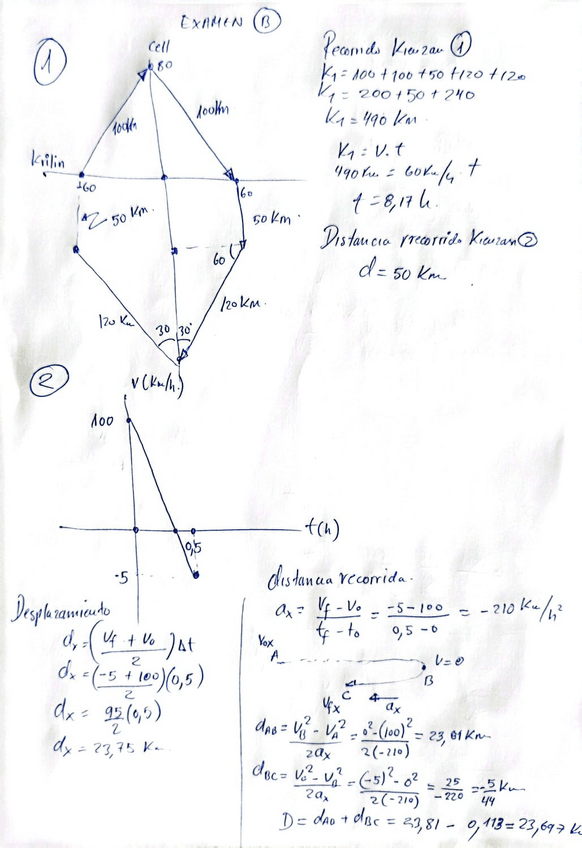 EXAMEN B
1
Cell
80
100Km
100Km
Krilin
60
60
50 Km.
50 Km.
60
120 Km
120 Km.
30
30°
Recorrido Kienzan 1
K1 = 100 + 100 + 50 + 120 + 120
K1 = 200 + 50 + 240
K1 = 490 Km.
K1 = V. t
490 Km = 60 Km/h. t
t = 8,17 h.
Distancia recorrido Kienzan 2
d = 50 Km
2
V (Km/h.)
100
t(h)
0,5
-5
Desplazamiento
dx = (Vf + Vo / 2) Δt
dx = (-5 + 100 / 2) (0,5)
dx = 95/2 (0,5)
dx = 23,75 Km
distancia recorrida.
ax = Vf - Vo / tf - to = -5 - 100 / 0,5 - 0 = -210 Km/h²
Vox
A
V=0
B
C
Vfx
ax
dAB = VB² - VA² / 2ax = 0² - (100)² / 2(-210) = 23,81 Km
dBC = Vc² - VB² / 2ax = (-5)² - 0² / 2(-210) = 25 / -220 = -5/44 Km
D = dAB + dBC = 23,81 - 0,113 = 23,697 Km